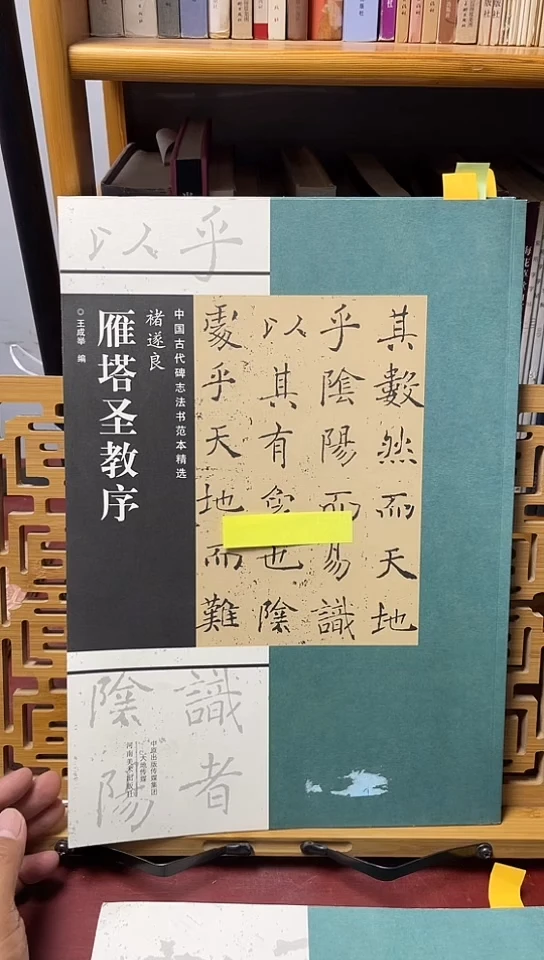 以乎
中国古代碑志法书范本精选
褚遂良
雁塔圣教序
◎王成举 编
其數然而天地
乎陰陽而易識
以其有
也陰
處乎天地而難
識者
陰陽
中原出版传媒集团
大地传媒
河南美术出版社